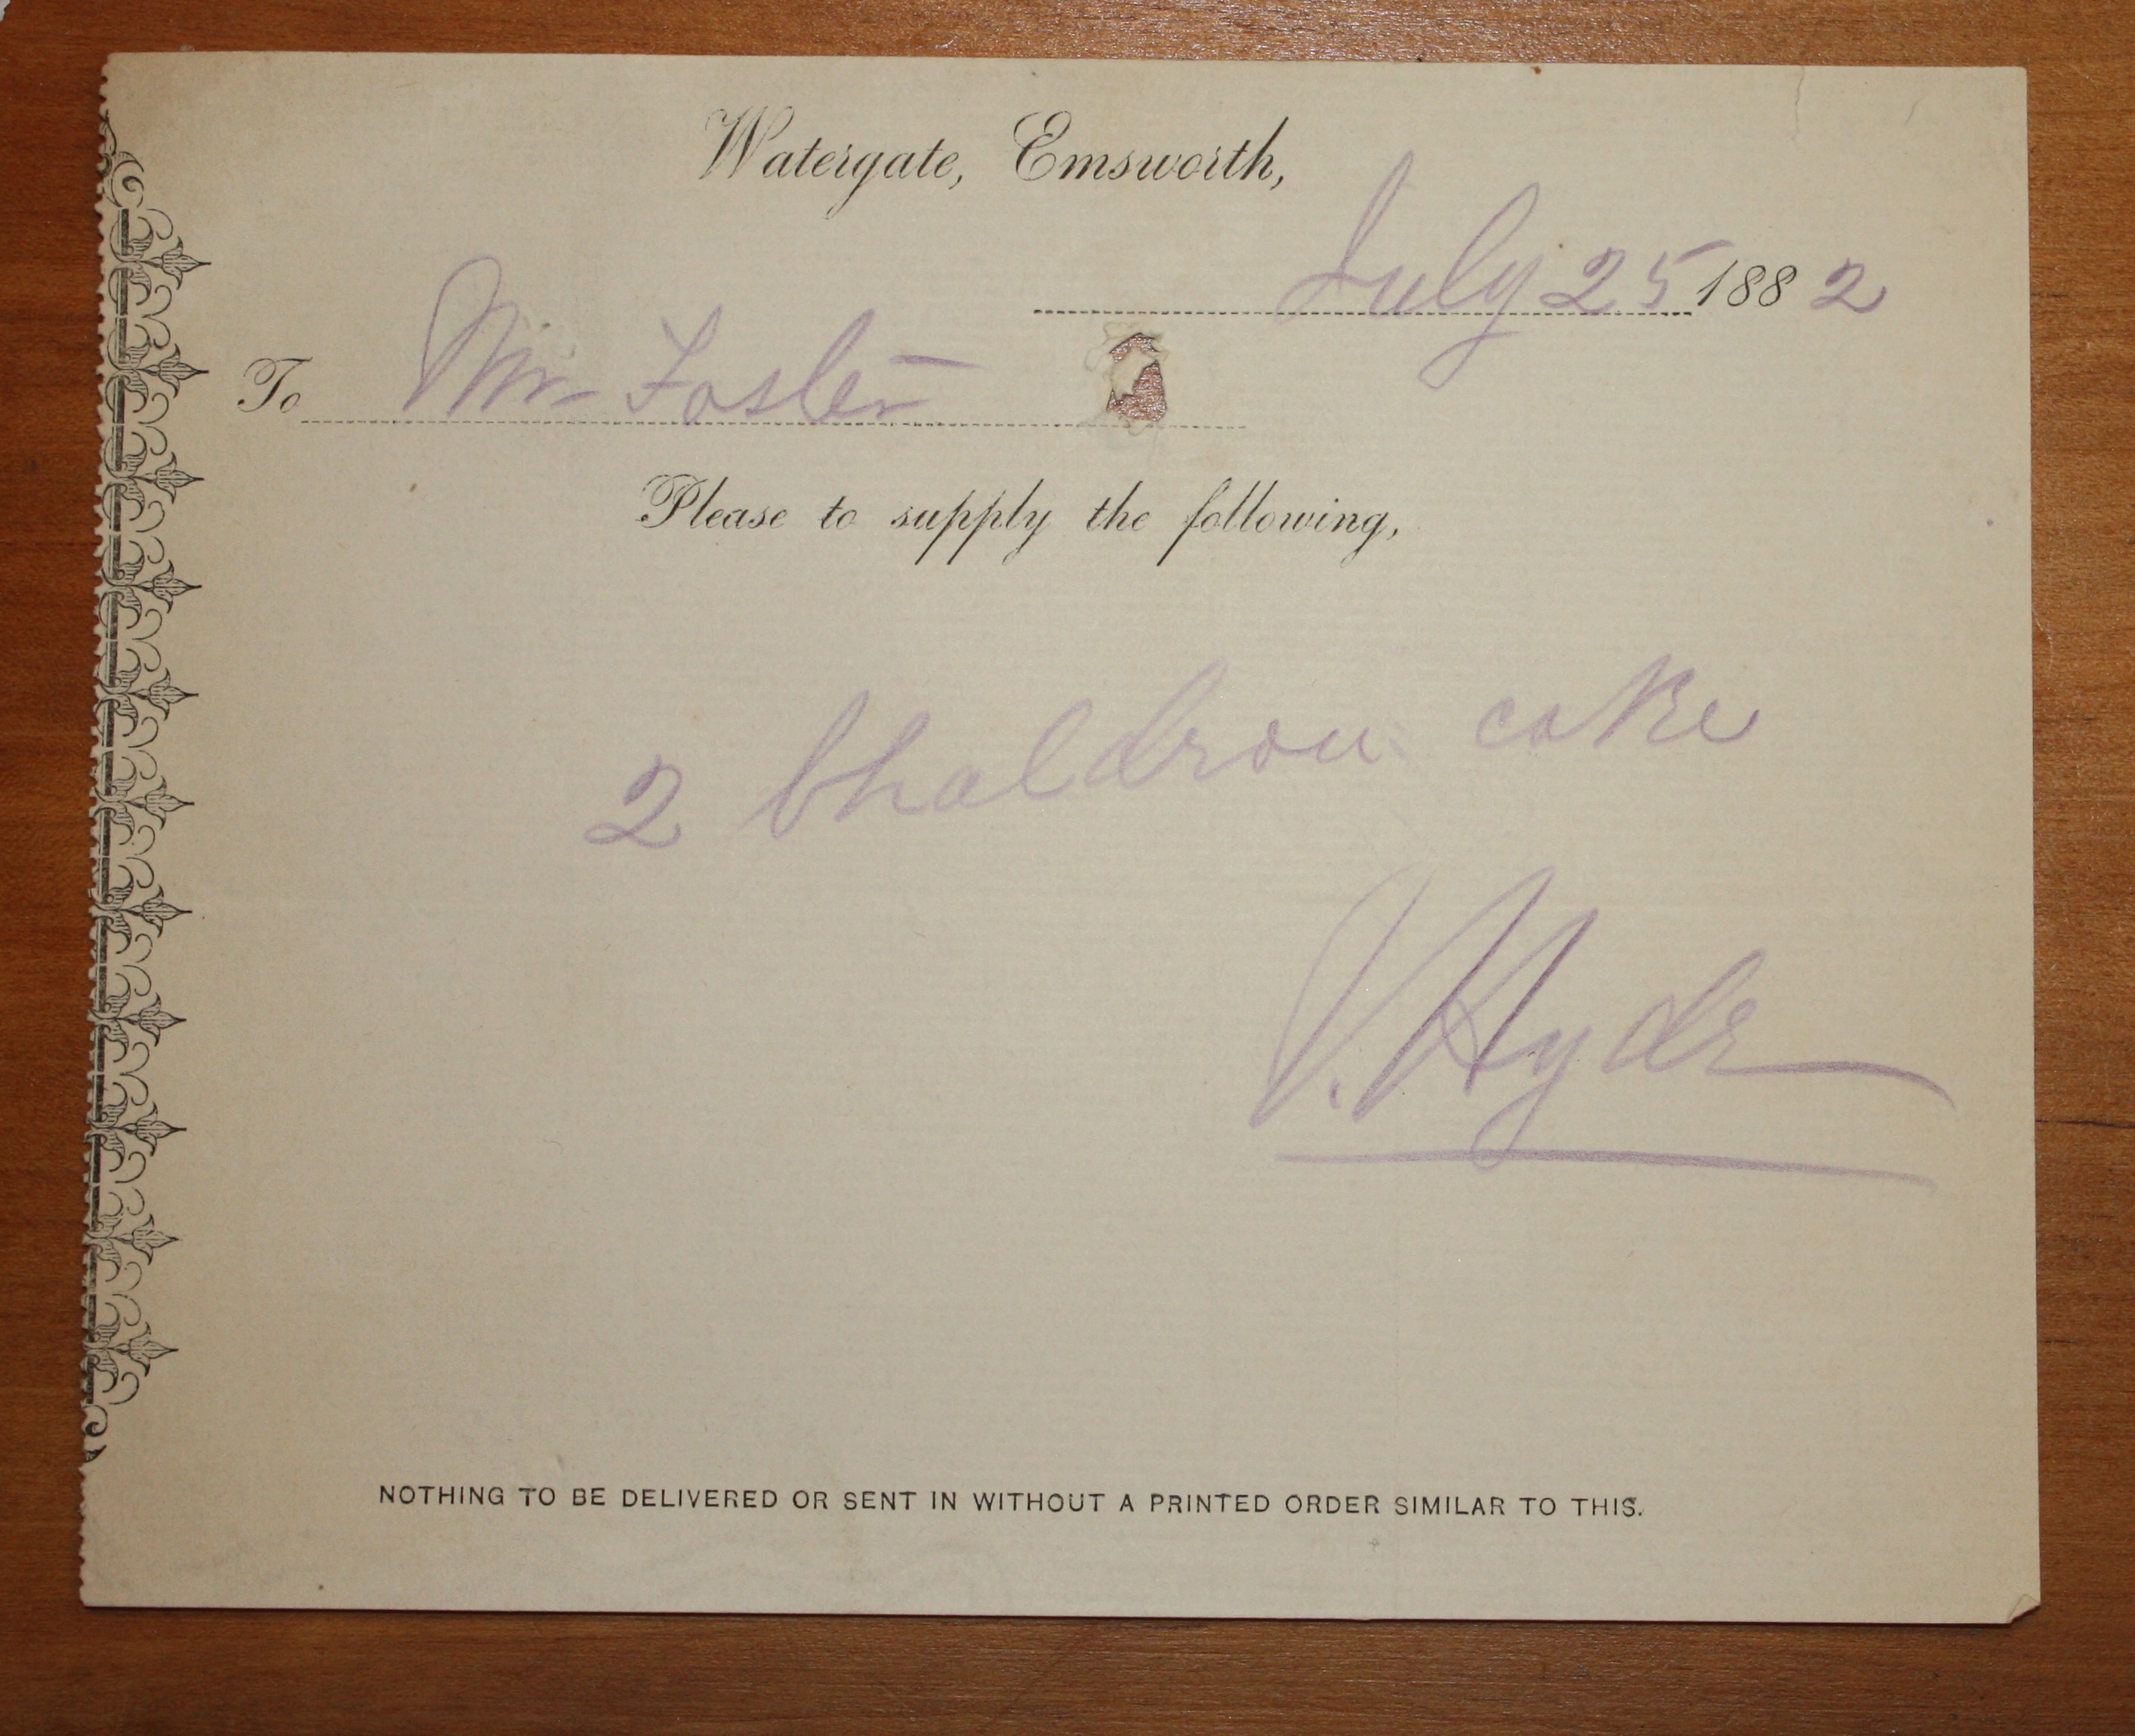 Watergate, Emsworth,
July 25 1882
To Mr Foster
Please to supply the following,
2 Chaldron coke
J. Hyde
NOTHING TO BE DELIVERED OR SENT IN WITHOUT A PRINTED ORDER SIMILAR TO THIS.